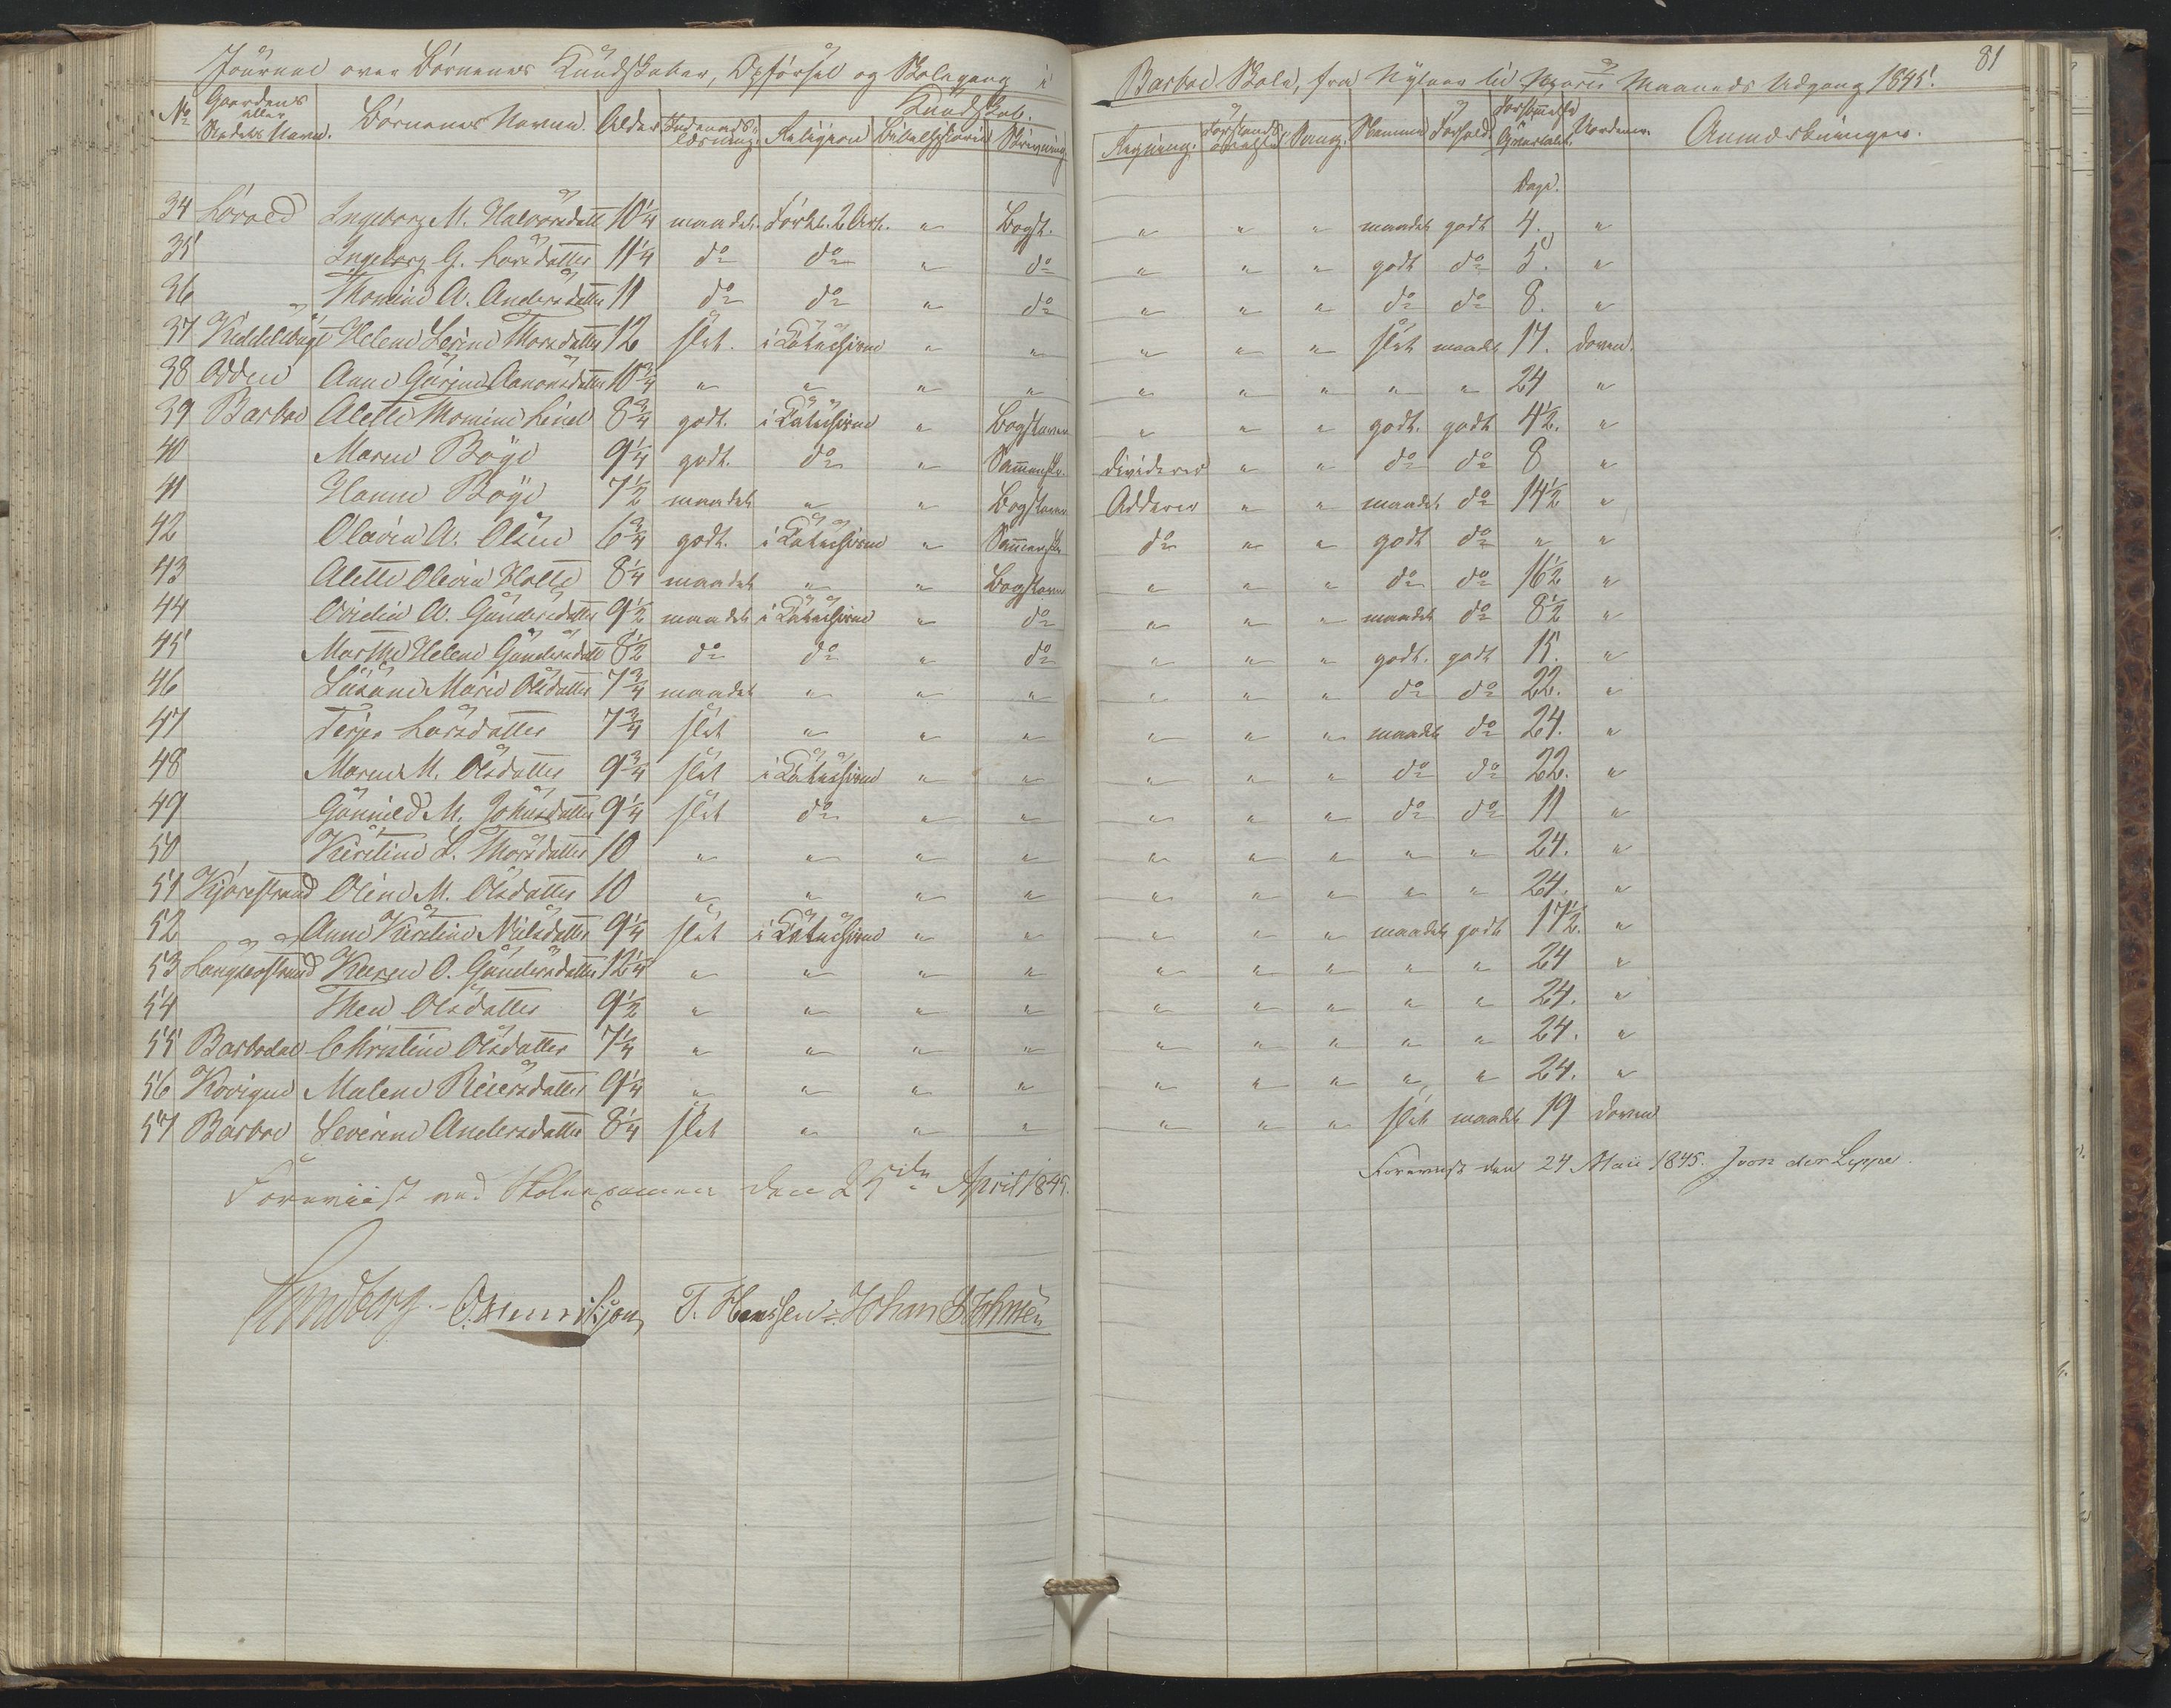 Journal over Børnenes Kundskaber, Opførsel og Skolegang i Barboe Skole, fra Nytaar til Marts Maaneds Udgang 1845.
81
No Gaardens eller Stedets Navn. Børnenes Navne. Alder Indenads-læsning. Religion Kundskab. Bibelhistorie Skrivning. Regning. Forstands øvelse Sang. Nemme Forhold. Forsømmelse Qvartalet. Anmærkninger.
Dage.
34 Ingeborg M. Halvorsdatt 10 1/4 maadel. Forkl. 2 Art. " Bogst. " " " maadel godt 4. "
35 Ingeborg G. Larsdatter 11 1/4 do do " do " " " godt do 5. "
36 Thomine A. Andersdatter 11 do do " do " " " do do 8. "
37 Helene Sevine Thorsdatter 12 slet. i Katechisme " " " " " slet maadel 17. doven.
38 Odden Anne Gurine Aanonsdatter 10 3/4 " " " " " " " " " 24 "
39 Barboe Alette Thomine Lind 8 3/4 godt. i Katechisme " Bogstaver " " " godt. godt 4 1/2. "
40 Maren Bøye 9 1/4 godt. do " Sammenskr. dividerer " " do do 8 "
41 Hanne Bøye 7 1/2 maadel " " Bogstaver Adderer " " maadel. do 14 1/2 "
42 Olavia A. Olsen 6 3/4 godt. i Katechisme " Sammenskr do " " godt do " "
43 Alette Olevia Holte 8 1/4 maadel " " Bogstaver " " " do do 16 1/2 "
44 A. Gundersdatter 9 1/2 maadel i Katechisme " do " " " maadel do 8 1/2 "
45 Marthe Helene Gundersdatt 8 1/2 do do " do " " " godt. godt 15. "
46 Susanne Marie Olsdatter 7 3/4 maadel " " " " " " do do 22. "
47 Terjer Larsdatter 7 3/4 slet " " " " " " maadel do 24. "
48 Maren M. Olsdatter 9 3/4 slet i Katechisme " " " " " do do 22. "
49 Gunnild M. Johnsdatter 9 1/4 slet do " " " " " do do 11 "
50 Kirstine L. Thorsdatter 10 " " " " " " " " " 24. "
51 Kjørrestrand Oline M. Olsdatter 10 " " " " " " " " " 24. "
52 " Anne Kirstine Nilsdatter 9 1/4 slet i Katechisme " " " " " maadel godt 17 1/2. "
53 Langsæstrand Karen O. Gundersdatter 12 1/4 " " " " " " " " " 24 "
54 Thea Olsdatter 9 1/2 " " " " " " " " " 24. "
55 Barbodal Christine Olsdatter 7 1/4 " " " " " " " " " 24. "
56 Malene Reiersdatter 9 1/4 " " " " " " " " " 24. "
57 Barboe Severine Andersdatter 8 1/4 slet " " " " " " slet maadel 19 doven
Foreviist ved Skoleexamen den 25de April 1845.
Foreviist den 24 Maii 1845. J von der Lippe.
T. Hanssen Johan